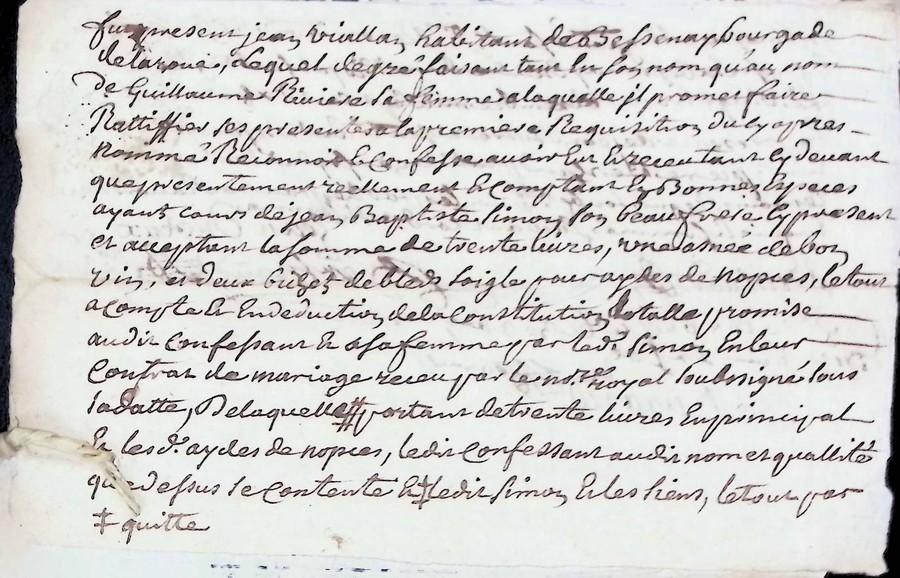 fut present jean viallan habitant de Bessenay bourgade
delavoué, Lequel de gré faisant tant En son nom qu'au nom
de Guillaume Riviere sa femme a laquelle jl promet faire
Rattiffier ses presentes a la premiere Requisition du Cy apres
Nommé Reconnoit Et Confesse avoir Eu Et receu tant Cy devant
que presentement reellement Et Comptant En Bonnes Especes
ayant cours de jean Baptiste Simon son beau frere Cy present
et acceptant la somme de trente Livres, une asnée de bon
vin, et deux bichet de bled soigle pour aydes de nopces, le tout
a compte Et En deduction de la Constitution totalle promise
audit Confessant Et a sa femme par led. Simon En leur
Contrat de mariage receu par le no.re Royal soubsigné sous
sa datte, De laquelle ⹋ portant de trente Livres En principal
Et les d. aydes de nopces, ledit Confessant audit nom et quallité
que dessus se contente Et ‡ ledit Simon Et les siens, le tout par
‡ quitte